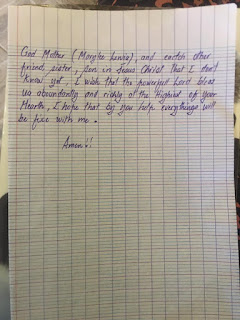 God Mother (                ), and each other
friend, sister, son in Jesus Christ that I don't
know yet. I wish that the powerfull Lord bless
us abundantly and richly at the Highest of your
Hearth, I hope that by you help everythings will
be fixe with me.
Amen !!